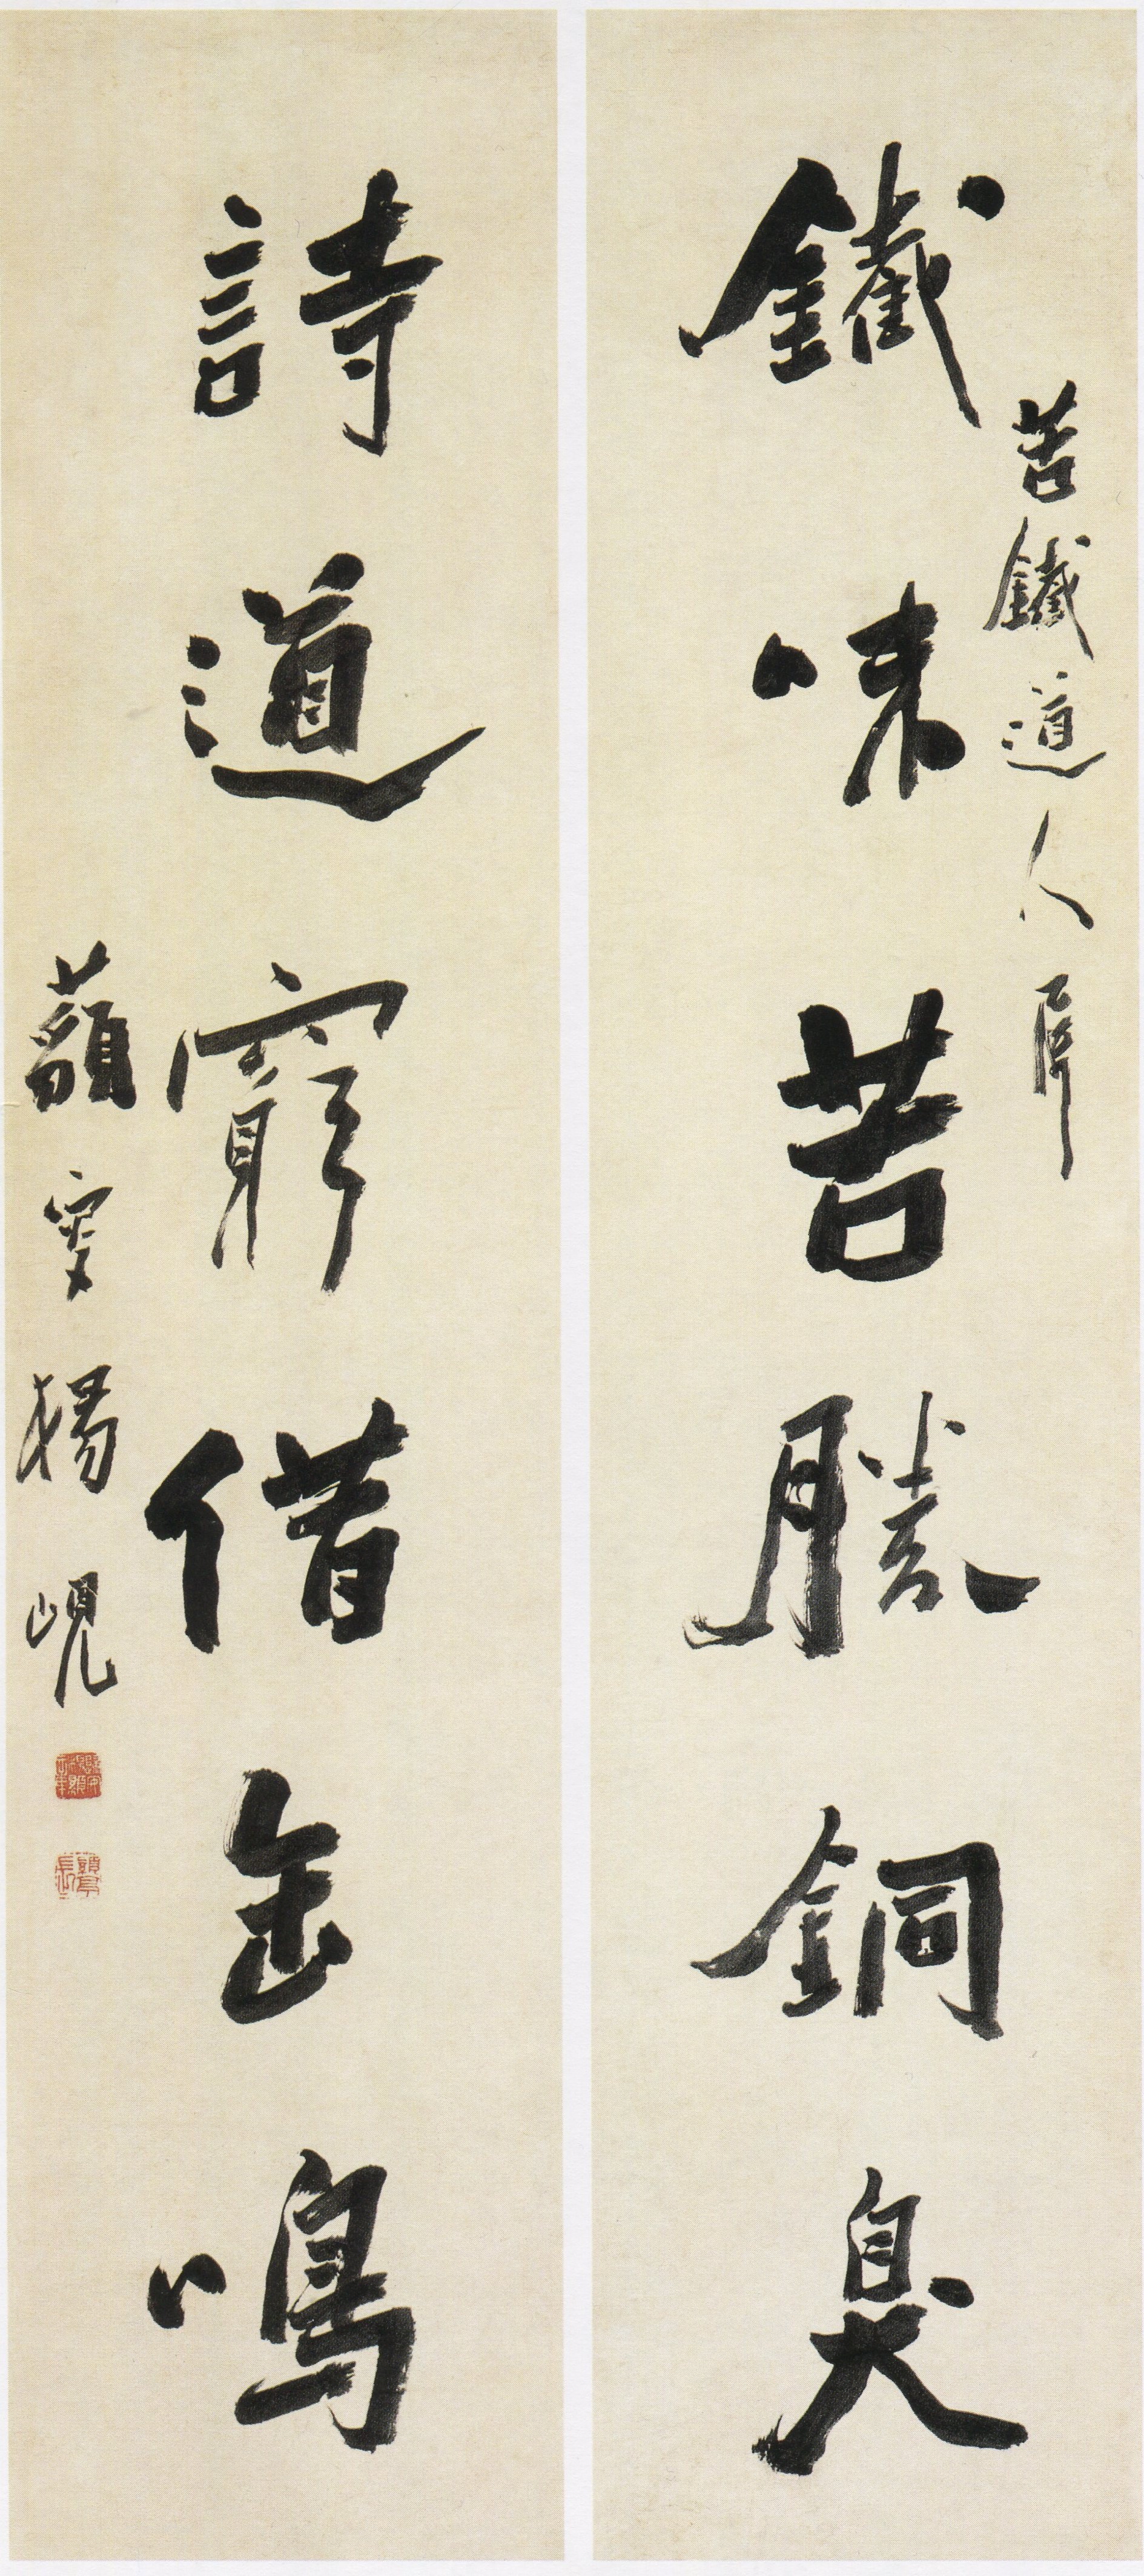 苦鐵道人屬
鐵味苦勝銅臭
詩道窮借缶鳴
藐叟楊峴